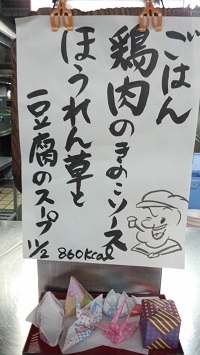 ごはん
鶏肉のきのこソース
ほうれん草と
豆腐のスープ
11/2 860kcal